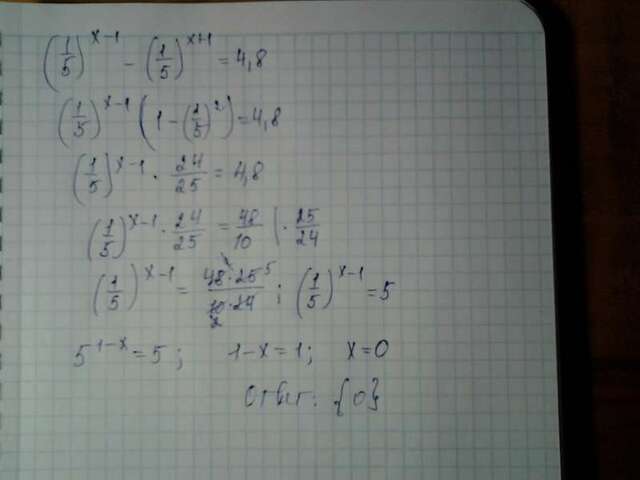 (1/5)^(x-1) - (1/5)^(x+1) = 4,8
(1/5)^(x-1) (1 - (1/5)^2) = 4,8
(1/5)^(x-1) · 24/25 = 4,8
(1/5)^(x-1) · 24/25 = 48/10 | · 25/24
(1/5)^(x-1) = 48·25/10·24 ; (1/5)^(x-1) = 5
5^(1-x) = 5 ; 1-x=1; x=0
Ответ: {0}